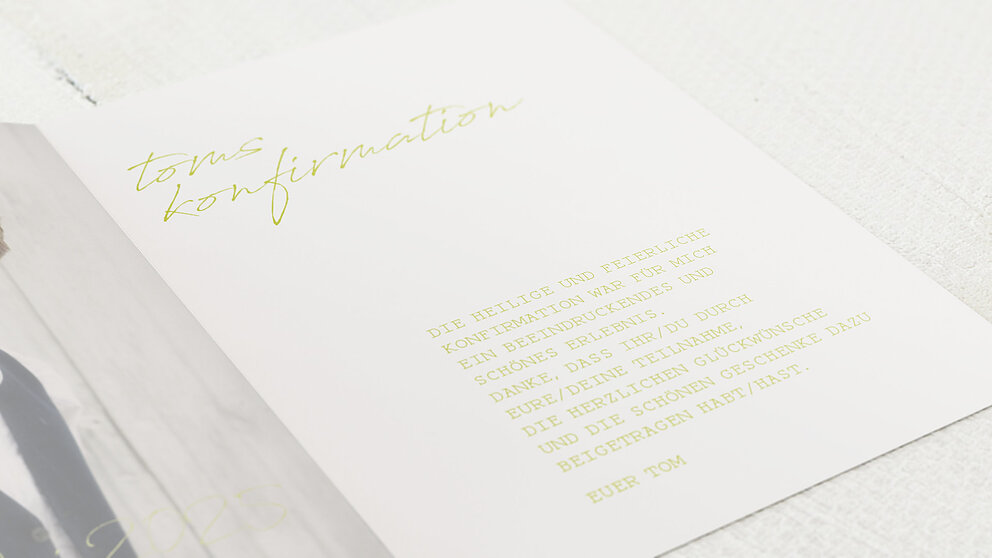 toms
konfirmation
DIE HEILIGE UND FEIERLICHE
KONFIRMATION WAR FÜR MICH
EIN BEEINDRUCKENDES UND
SCHÖNES ERLEBNIS.
DANKE, DASS IHR/DU DURCH
EURE/DEINE TEILNAHME,
DIE HERZLICHEN GLÜCKWÜNSCHE
UND DIE SCHÖNEN GESCHENKE DAZU
BEIGETRAGEN HABT/HAST.
EUER TOM
2025